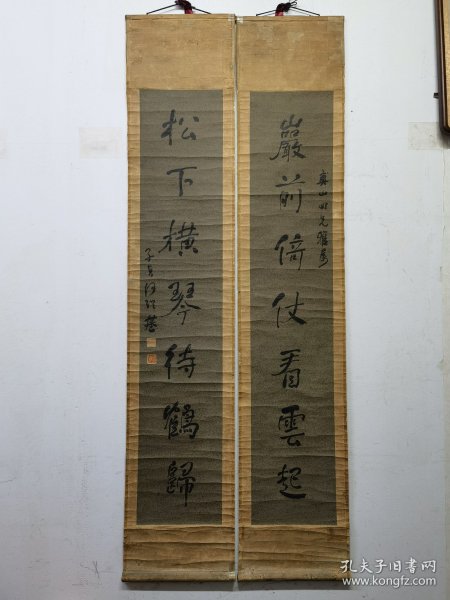 巖前倚仗看雲起
松下橫琴待鶴歸
子貞何紹基
孔夫子旧书网
www.kongfz.com